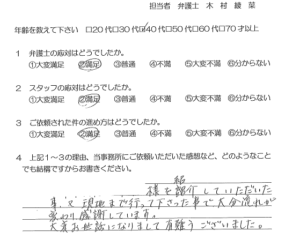 担当者 弁護士 木村綾菜
年齢を教えて下さい □20代□30代☑40代□50代□60代□70才以上
1 弁護士の応対はどうでしたか。
①大変満足 ②満足 ③普通 ④不満 ⑤大変不満 ⑥分からない
2 スタッフの応対はどうでしたか。
①大変満足 ②満足 ③普通 ④不満 ⑤大変不満 ⑥分からない
3 ご依頼された件の進め方はどうでしたか。
①大変満足 ②満足 ③普通 ④不満 ⑤大変不満 ⑥分からない
4 上記1~3の理由、当事務所にご依頼いただいた感想など、どのようなこと
でも結構ですからお書きください。
紹
様を紹介していただいた
事、又、現地まで行って下さった事で大分流れが
変わり感謝しています。
大変お世話になりまして有難うございました。